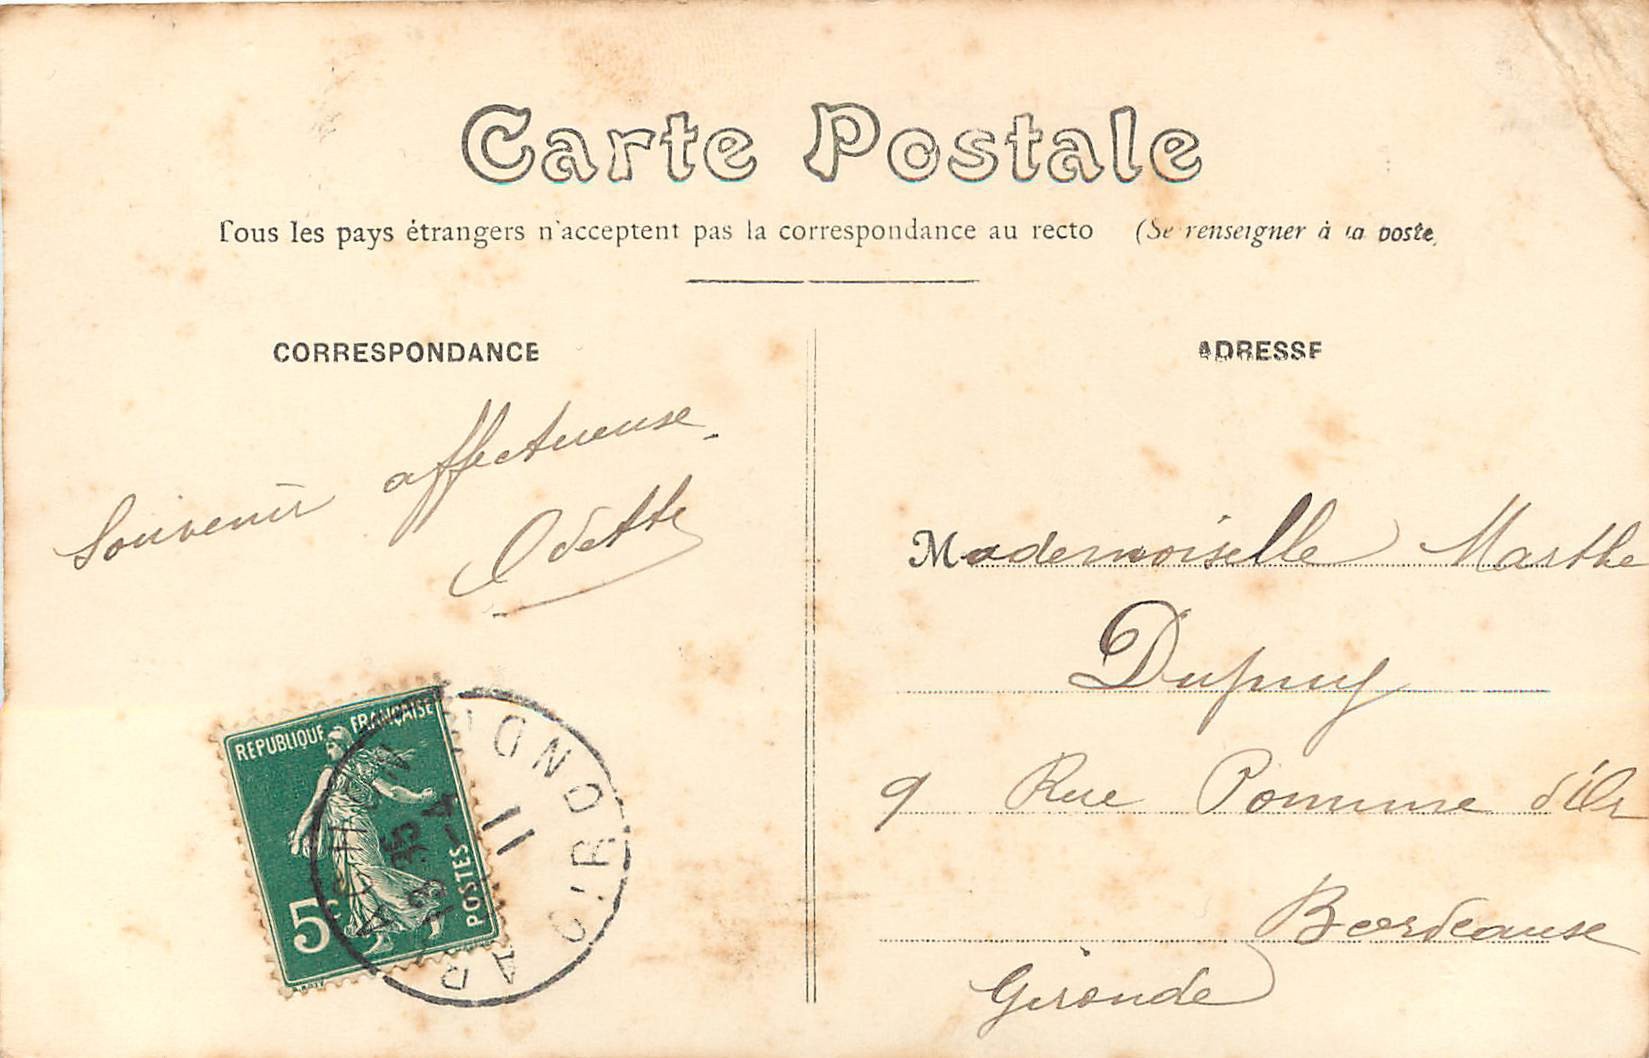 Carte Postale
Tous les pays étrangers n'acceptent pas la correspondance au recto (Se renseigner à la poste,
CORRESPONDANCE
Souvenir affectueuse.
Odette
REPUBLIQUE FRANÇAISE
POSTES
5c
ARCACHON GIRONDE
35
28 -4
11
ADRESSE
Mademoiselle Marthe
Dupuy
9 Rue Pomme d'Or
Bordeaux
Gironde